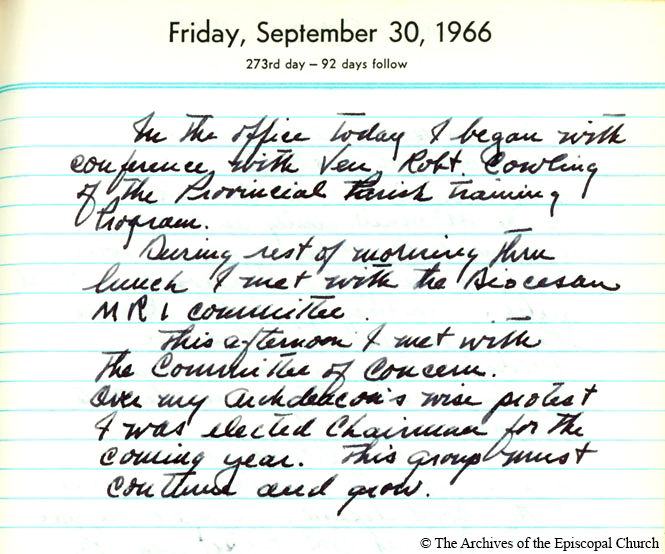 Friday, September 30, 1966
273rd day – 92 days follow
In the office today I began with
conference with Ven. Robt. Cowling
of the Provincial Parish Training
Program.
During rest of morning thru
lunch I met with the Diocesan
M R I committee.
This afternoon I met with
the Committee of Concern.
Over my Archdeacon's wise protest
I was elected Chairman for the
coming year. This group must
continue and grow.
© The Archives of the Episcopal Church